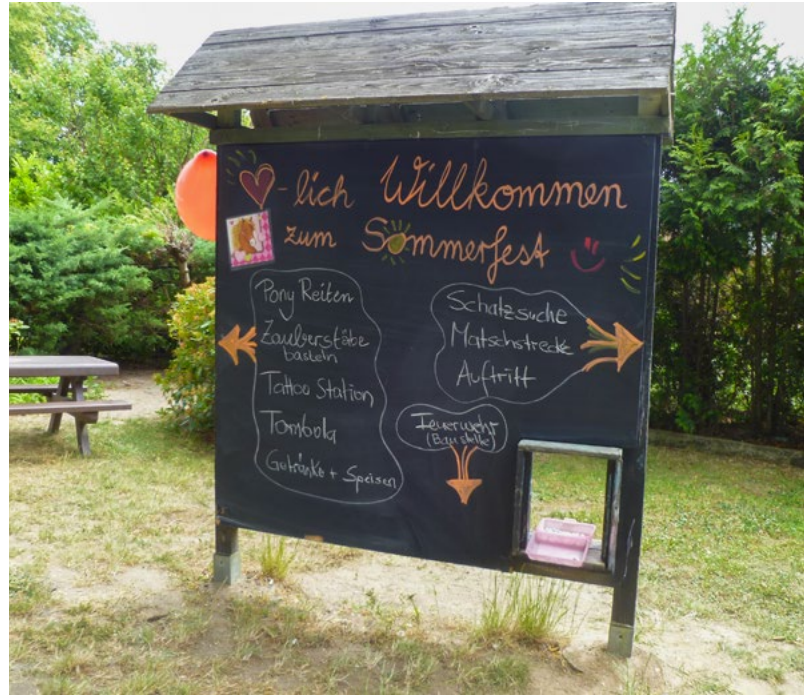 -lich Willkommen
zum Sommerfest
Pony Reiten
Zauberstäbe
basteln
Tattoo Station
Tombola
Getränke + Speisen
Schatzsuche
Matschstrecke
Auftritt
Feuerwehr
(Baustelle)